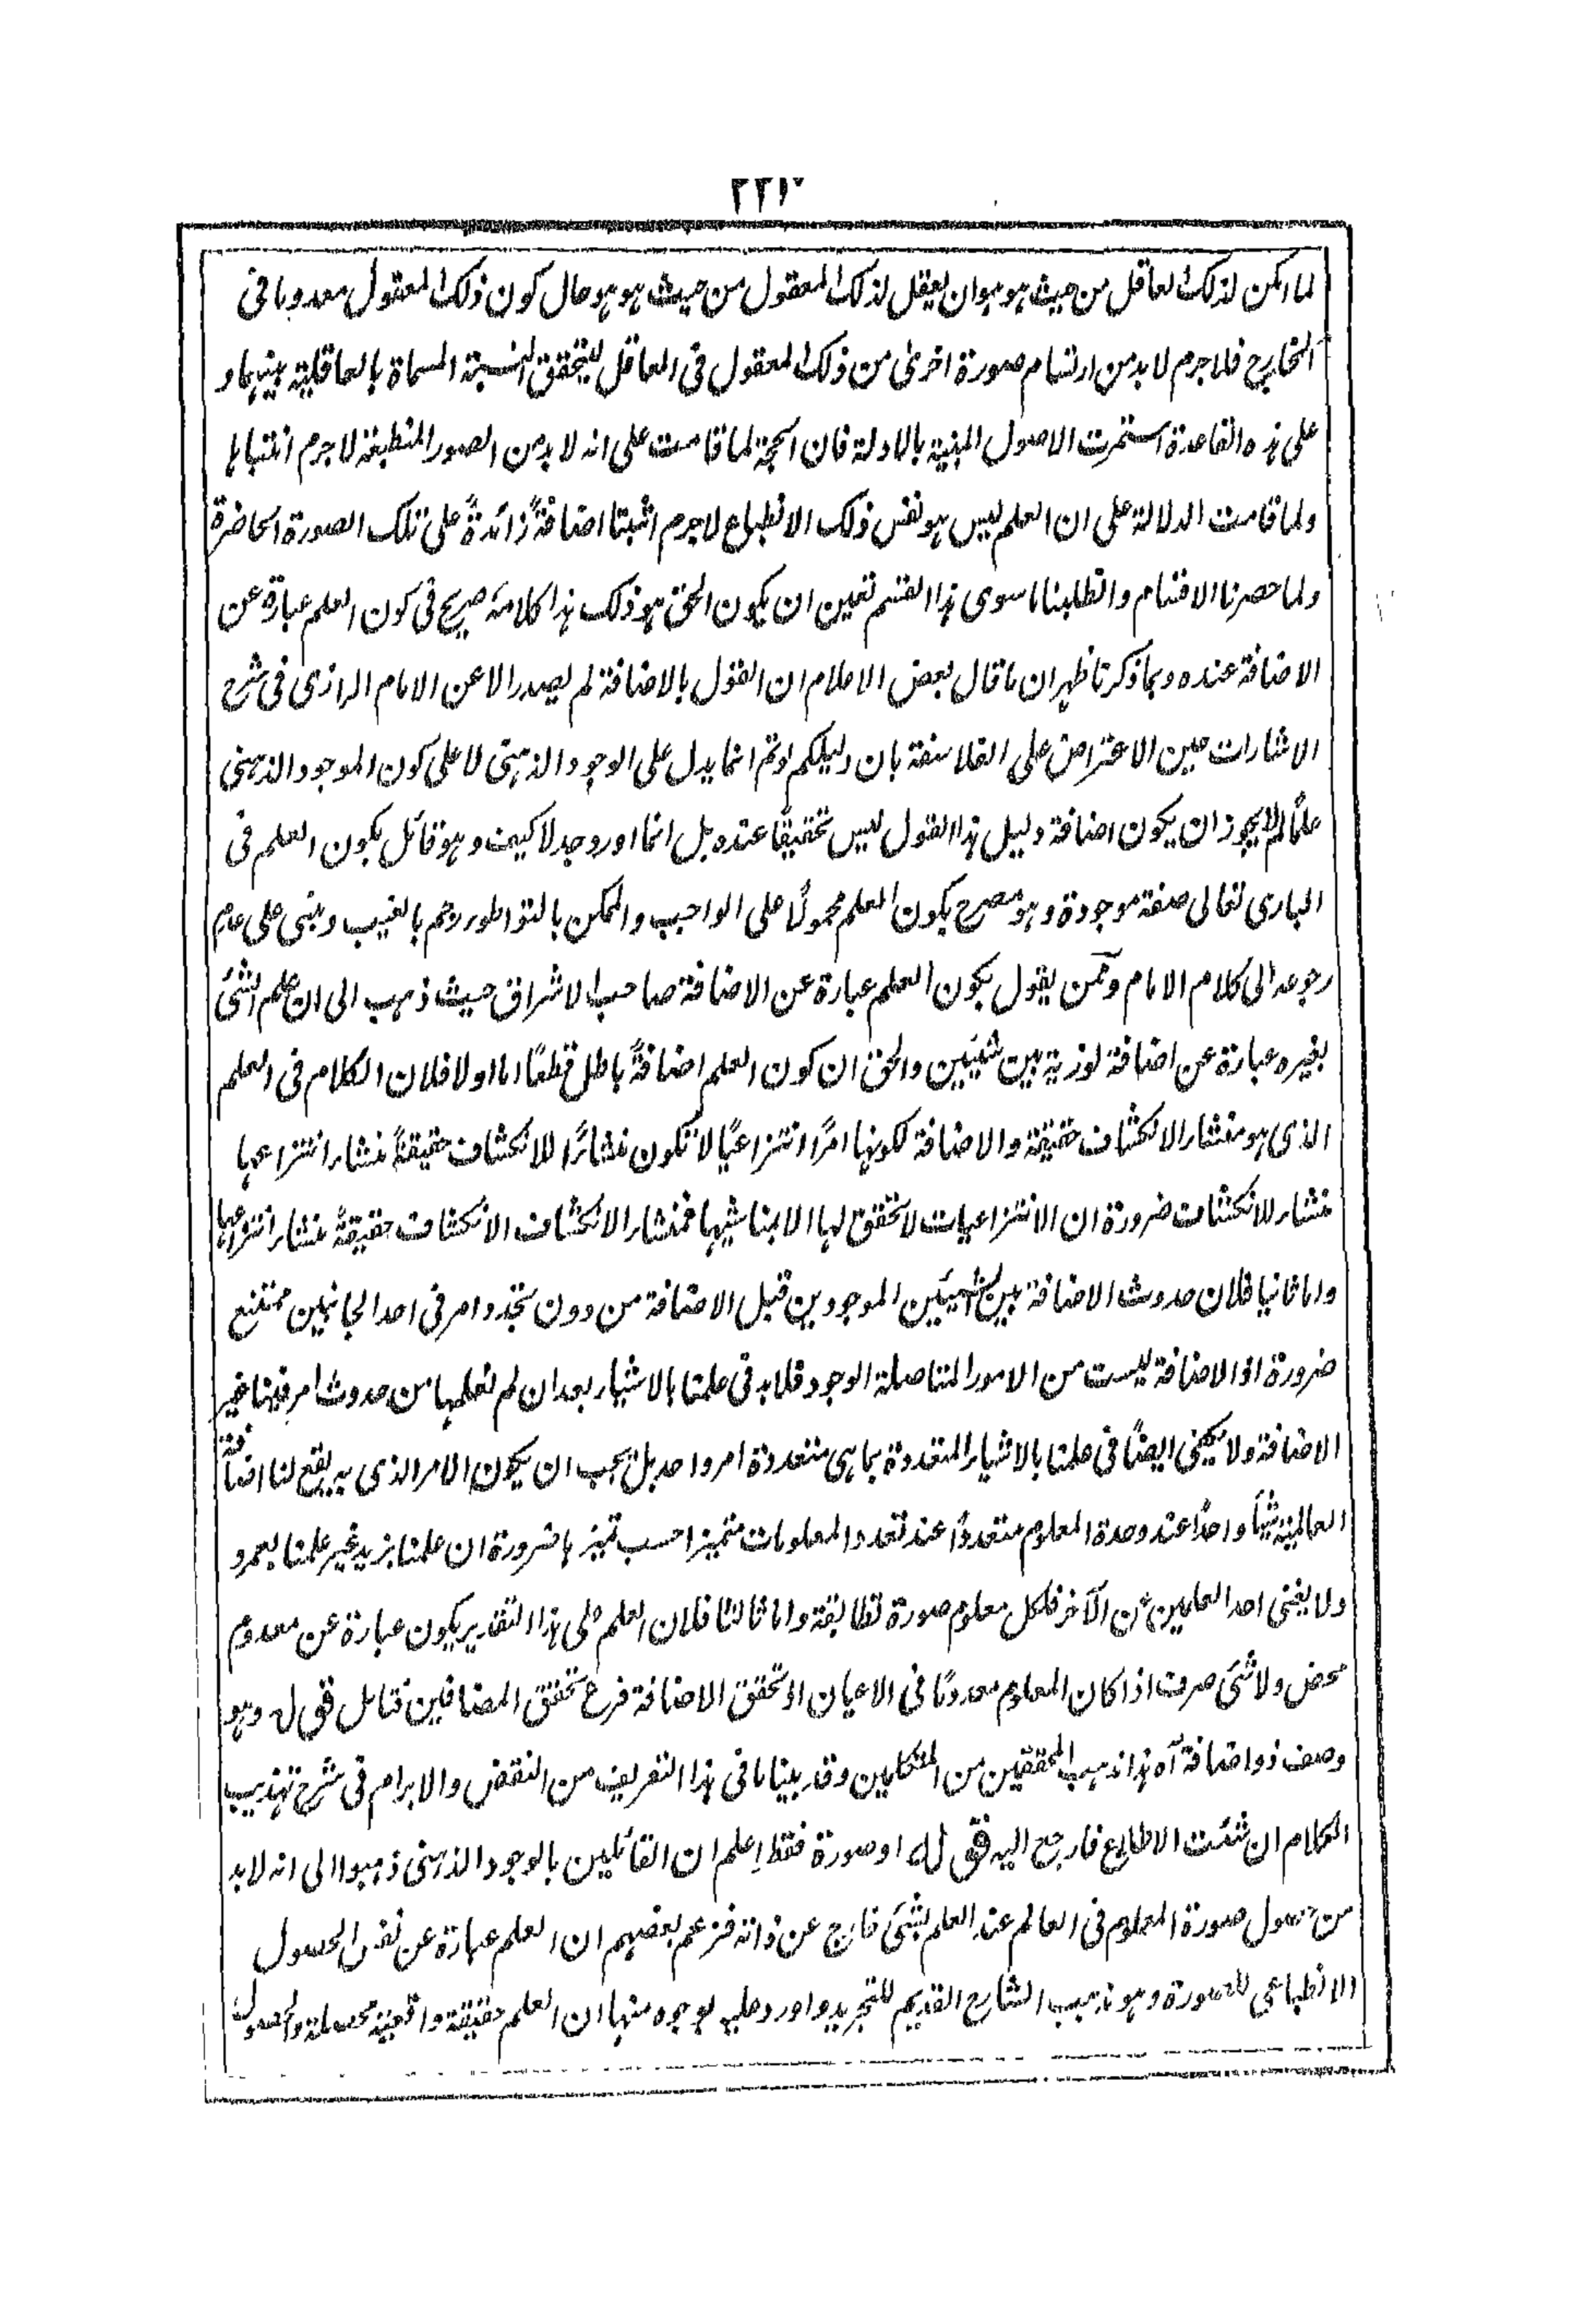 لما امكن لذلك العاقل من حيث هو هو ان يعقل لذلك المعقول من حيث هو هو حال كون ذلك المعقول معدوما فى
الخارج فلا جرم لا بد من ارتسام صورة اخرى من ذلك المعقول فى العاقل ليتحقق النسبة المسماة بالعاقلية بينهما و
على هذه القاعدة استمرت الاصول المبنية بالادلة فان الحجة لما قامت على انه لا بد من الصور المنطبعة لا جرم اثبتناها
ولما قامت الدلالة على ان العلم ليس هو نفس ذلك الانطباع لا جرم اثبتنا اضافةً زائدةً على تلك الصورة الحاضرة
ولما حصرنا الاقسام وابطلنا ما سوى هذا القسم تعين ان يكون الحق هو ذلك هذا كلامه صريح فى كون العلم عبارة عن
الاضافة عنده وبما ذكرنا ظهر ان ما قال بعض الاعلام ان القول بالاضافة لم يصدر الا عن الامام الرازى فى شرح
الاشارات حين الاعتراض على الفلاسفة بان دليلكم لو تم انما يدل على الوجود الذهنى لا على كون الموجود الذهنى
علمًا لم لا يجوز ان يكون اضافة وليس هذا القول ليس تحقيقًا عنده بل انما اورد جدلا كيف وهو قائل بكون العلم فى
البارى تعالى صفة موجودة وهو مصرح بكون العلم محمولًا على الواجب والممكن بالتواطور رجم بالغيب ومبنى على عدم
رجوعه الى كلام الامام وممن يقول بكون العلم عبارة عن الاضافة صاحب الاشراق حيث ذهب الى ان علم الشئ
بغيره عبارة عن اضافة نورية بين شيئين والحق ان كون العلم اضافةً باطل قطعًا اما اولا فلان الكلام فى العلم
الذى هو منشار الانكشاف حقيقة والاضافة لكونها امرًا انتزاعيًا لا تكون منشارًا للانكشاف حقيقةً منشار انتزاعها
منشار للانكشاف ضرورة ان الانتزاعيات لا تحقق لها الا بمناشيها فمنشار الانكشاف الانكشاف حقيقةً منشار انتزاعها
واما ثانيا فلان حدوث الاضافة بين الشيئين الموجودين قبل الاضافة من دون تجدد امر فى احد الجانبين ممتنع
ضرورة اذ الاضافة ليست من الامور المتاصلة الوجود فلا بد فى علمنا بالاشيار بعد ان لم نعلمها من حدوث امر فينا غير
الاضافة ولا يكفى ايضًا فى علمنا بالاشيار المتعددة بما هى متعددة امر واحد بل يجب ان يكون الامر الذى به يقع لنا اضافة
العالمية شيئًا واحدًا عند وحدة المعلوم متعددًا عند تعدد المعلومات متميزا حسب تميزها ضرورة ان علمنا بزيد غير علمنا بعمرو
ولا يغنى احد العلمين عن الآخر فلكل معلوم صورة تطابقة واما ثالثا فلان العلم على هذا التقدير يكون عبارة عن معدوم
محض ولا شئ صرف اذا كان المعلوم معدومًا فى الاعيان اذ تحقق الاضافة فرع تحقق المضافين فتامل قوله وهو
وصف ذو اضافة آه هذا مذهب المحققين من المتكلمين وقد بينا ما فى هذا التعريف من النقض والابرام فى شرح تهذيب
الكلام ان شئت الاطلاع فارجع اليه قوله او صورة فقط اعلم ان القائلين بالوجود الذهنى ذهبوا الى انه لا بد
من حصول صورة المعلوم فى العالم عند العلم بشئ خارج عن ذاته فزعم بعضهم ان العلم عبارة عن نفس الحصول
الانطباعى للصورة وهو مذهب الشارح القديم للتجريد واورد عليه بوجوه منها ان العلم حقيقة واقعية محصلة والحصول